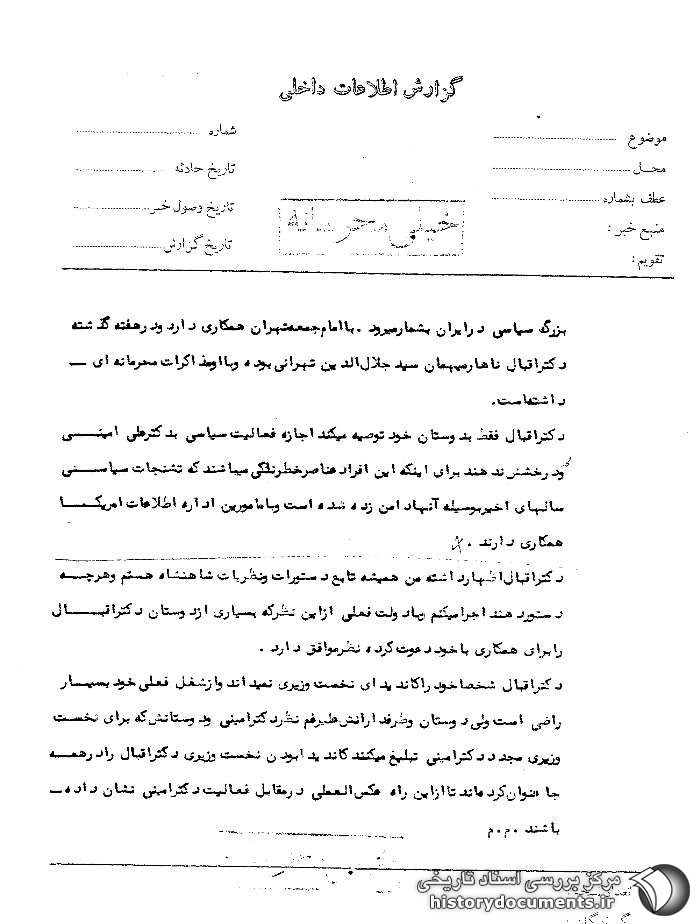 گزارش اطلاعات داخلی
موضوع
محل
عطف بشماره
منبع خبر :
تقویم :
شماره
تاریخ حادثه
تاریخ وصول خبر
تاریخ گزارش
خیلی محرمانه
بزرگ سیاسی در ایران بشمار میرود . با امام جمعه تهران همکاری دارد و در هفته گذشته
دکتر اقبال ناهار میهمان سید جلال الدین تهرانی بوده و با او مذاکرات محرمانه ای ــ
داشته است.
دکتر اقبال فقط بدوستان خود توصیه میکند اجازه فعالیت سیاسی بدکتر علی امینی
و درخشش ندهند برای اینکه این افراد عناصر خطرناکی میباشند که تشنجات سیاسی
سالهای اخیر بوسیله آنها دامن زده شده است و با مامورین اداره اطلاعات امریکا
همکاری دارند .
دکتر اقبال اظهار داشته من همیشه تابع دستورات و نظریات شاهنشاه هستم و هرچه
دستور دهند اجرا میکنم و با دولت فعلی از این نظر که بسیاری از دوستان دکتر اقبال
را برای همکاری با خود دعوت کرده نظر موافق دارد .
دکتر اقبال شخصا خود را کاندیدای نخست وزیری نمیداند و از شغل فعلی خود بسیار
راضی است ولی دوستان و طرفدارانش علیرغم نظر دکتر امینی و دوستانش که برای نخست
وزیری مجدد دکتر امینی تبلیغ میکنند کاندیدا بودن نخست وزیری دکتر اقبال را در همه
جا عنوان کرده اند تا از این راه عکس العملی در مقابل فعالیت دکتر امینی نشان داده ــ
باشند .م.م
مرکز بررسی اسناد تاریخی
historydocuments.ir